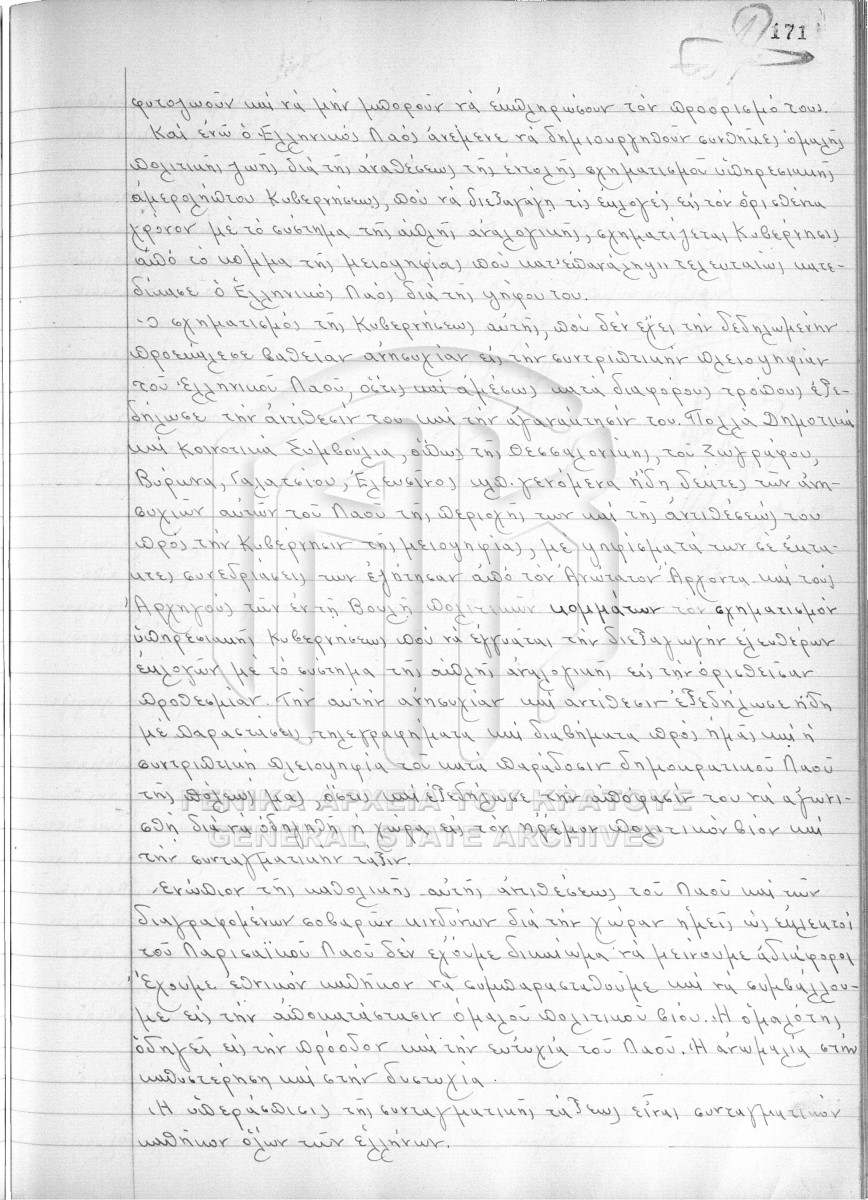 171
φυτοζωοῦν καί νά μήν μποροῦν νά ἐκπληρώσουν τόν προορισμό τους.
Καί ἐνῶ ὁ Ἑλληνικός Λαός ἀνέμενε νά δημιουργηθοῦν συνθῆκες ὁμαλῆς
πολιτικῆς ζωῆς διά τῆς ἀναθέσεως τῆς ἐντολῆς σχηματισμοῦ ὑπηρεσιακῆς
ἀμερολήπτου Κυβερνήσεως, πού νά διεξαγάγη τίς ἐκλογές εἰς τόν ὁρισθέντα
χρόνον μέ τό σύστημα τῆς ἁπλῆς ἀναλογικῆς, σχηματίζεται Κυβέρνησις
ἀπό τό κόμμα τῆς μειοψηφίας πού κατ' ἐπανάληψιν τελευταίως κατε-
δίκασε ὁ Ἑλληνικός Λαός διά τῆς ψήφου του.
Ὁ σχηματισμός τῆς Κυβερνήσεως αὐτῆς, πού δέν ἔχει τήν δεδηλωμένην
προεκάλεσε βαθεῖαν ἀνησυχίαν εἰς τήν συντριπτικήν πλειοψηφίαν
τοῦ Ἑλληνικοῦ Λαοῦ, ὅστις καί ἀμέσως κατά διαφόρους τρόπους ἐξε-
δήλωσε τήν ἀντίθεσίν του καί τήν ἀγανάκτησίν του. Πολλά Δημοτικά
καί Κοινοτικά Συμβούλια, ὅπως τῆς Θεσσαλονίκης, τοῦ Ζωγράφου,
Βύρωνα, Γαλατσίου, Ἐλευσῖνος κλπ. γενόμενα ἤδη δέκτες τῶν ἀνη-
συχιῶν αὐτῶν τοῦ Λαοῦ τῆς περιοχῆς των καί τῆς ἀντιθέσεώς του
πρός τήν Κυβέρνησιν τῆς μειοψηφίας, μέ ψηφίσματά των σέ ἔκτα-
κτες συνεδριάσεις των ἐζήτησαν ἀπό τόν Ἀνώτατον Ἄρχοντα καί τούς
Ἀρχηγούς τῶν ἐν τῇ Βουλῇ πολιτικῶν κομμάτων τόν σχηματισμόν
ὑπηρεσιακῆς Κυβερνήσεως πού νά ἐγγυᾶται τήν διεξαγωγήν ἐλευθέρων
ἐκλογῶν μέ τό σύστημα τῆς ἁπλῆς ἀναλογικῆς εἰς τήν ὁρισθεῖσαν
προθεσμίαν. Τήν αὐτήν ἀνησυχίαν καί ἀντίθεσιν ἐξεδήλωσε ἤδη
μέ παραστάσεις, τηλεγραφήματα καί διαβήματα πρός ἡμᾶς καί ἡ
συντριπτική πλειοψηφία τοῦ κατά παράδοσιν δημοκρατικοῦ Λαοῦ
τῆς πόλεώς μας, ὅστις καί ἐξεδήλωσε τήν ἀπόφασίν του νά ἀγωνι-
σθῆ διά νά ὁδηγηθῆ ἡ χώρα εἰς τόν ἤρεμον πολιτικόν βίον καί
τήν συνταγματικήν τάξιν.
Ἐνώπιον τῆς καθολικῆς αὐτῆς ἀντιθέσεως τοῦ Λαοῦ καί τῶν
διαγραφομένων σοβαρῶν κινδύνων διά τήν χώραν ἡμεῖς ὡς ἐκλεκτοί
τοῦ Λαρισαϊκοῦ Λαοῦ δέν ἔχουμε δικαίωμα νά μείνουμε ἀδιάφοροι
Ἔχουμε ἐθνικόν καθῆκον νά συμπαρασταθοῦμε καί νά συμβάλλου-
με εἰς τήν ἀποκατάστασιν ὁμαλοῦ πολιτικοῦ βίου. Ἡ ὁμαλότης
ὁδηγεῖ εἰς τήν πρόοδον καί τήν εὐτυχία τοῦ Λαοῦ. Ἡ ἀνωμαλία στήν
καθυστέρηση καί στήν δυστυχία.
Ἡ ὑπεράσπισις τῆς συνταγματικῆς τάξεως εἶναι συνταγματικόν
καθῆκον ὅλων τῶν Ἑλλήνων.
ΓΕΝΙΚΑ ΑΡΧΕΙΑ ΤΟΥ ΚΡΑΤΟΥΣ
GENERAL STATE ARCHIVES